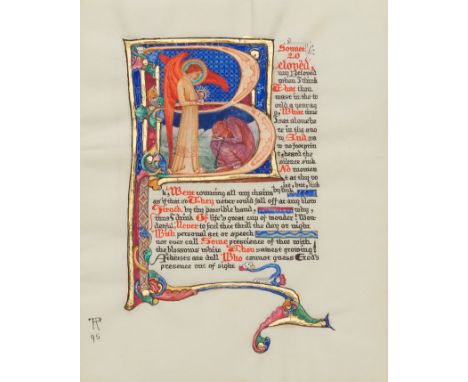 Sonnet
20
eloved,
my beloved
when I think
That thou
wast in the w
orld a year ag
o, What time
I sat alone he
re in the sno
w And sa
w no footprin
t, heard the
silence sink
Ad momen
t at thy vo
ice, but, link
by link
k; Went counting all my chains
as if that so They never could fall off at any blow
Struck by thy possible hand, why,
thus I drink Of life's great cup of wonder! Won
derful, Never to feel thee thrill the day or night
With personal act or speech
nor ever cull Some prescience of thee with
the blossoms white Thou sawest growing!
Atheists are dull Who cannot guess God's
presence out of sight
95